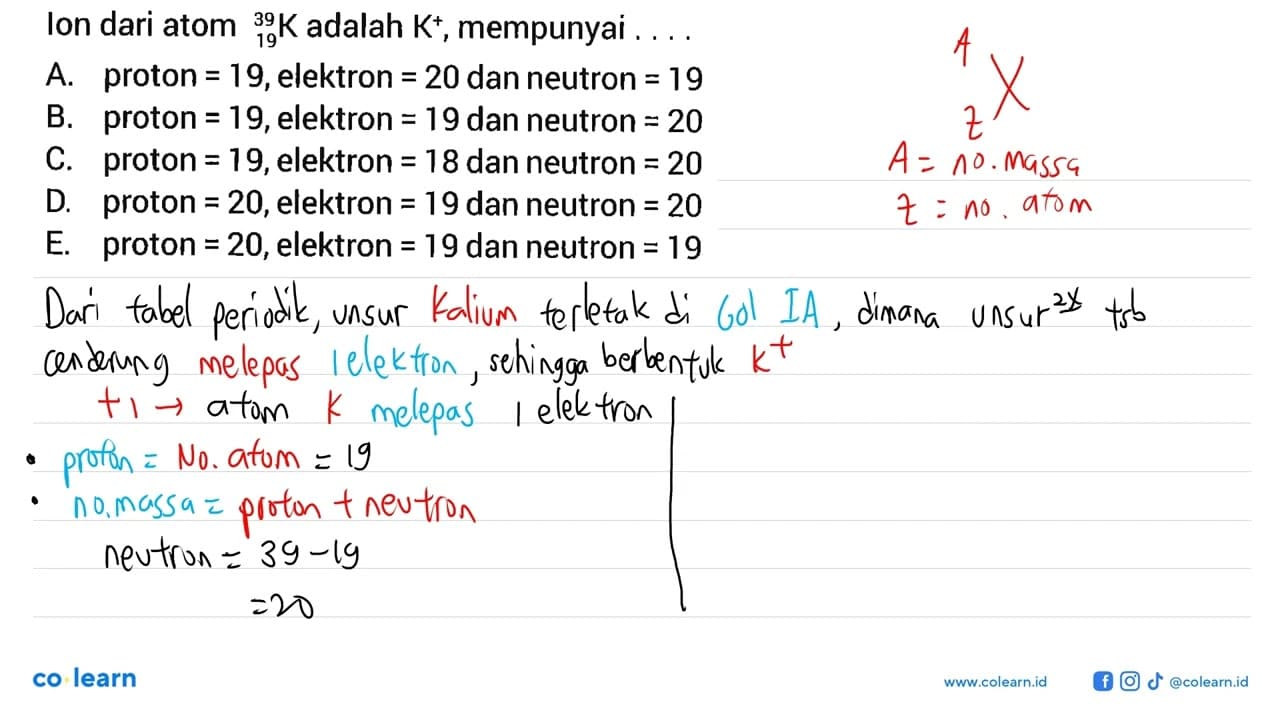 Ion dari atom ³⁹₁₉K adalah K⁺, mempunyai . . . .
A. proton = 19, elektron = 20 dan neutron = 19
B. proton = 19, elektron = 19 dan neutron = 20
C. proton = 19, elektron = 18 dan neutron = 20
D. proton = 20, elektron = 19 dan neutron = 20
E. proton = 20, elektron = 19 dan neutron = 19
A
X
Z
A = no. massa
Z = no. atom
Dari tabel periodik, unsur Kalium terletak di Gol IA, dimana unsur²ˣ tsb
cenderung melepas 1 elektron, sehingga berbentuk K⁺
+1 → atom K melepas 1 elektron
• proton = No. atom = 19
• no. massa = proton + neutron
neutron = 39 - 19
= 20
co learn
www.colearn.id
@colearn.id